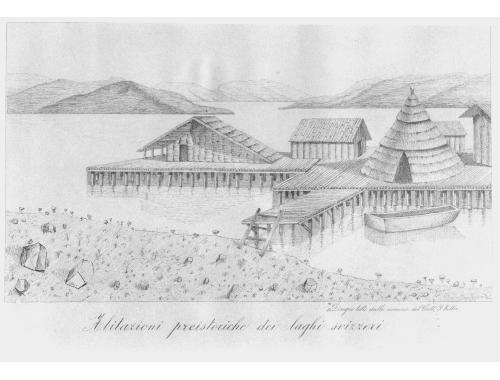 Disegno tolto dalle memorie del Dott. F. Keller
Abitazioni preistoriche dei laghi svizzeri